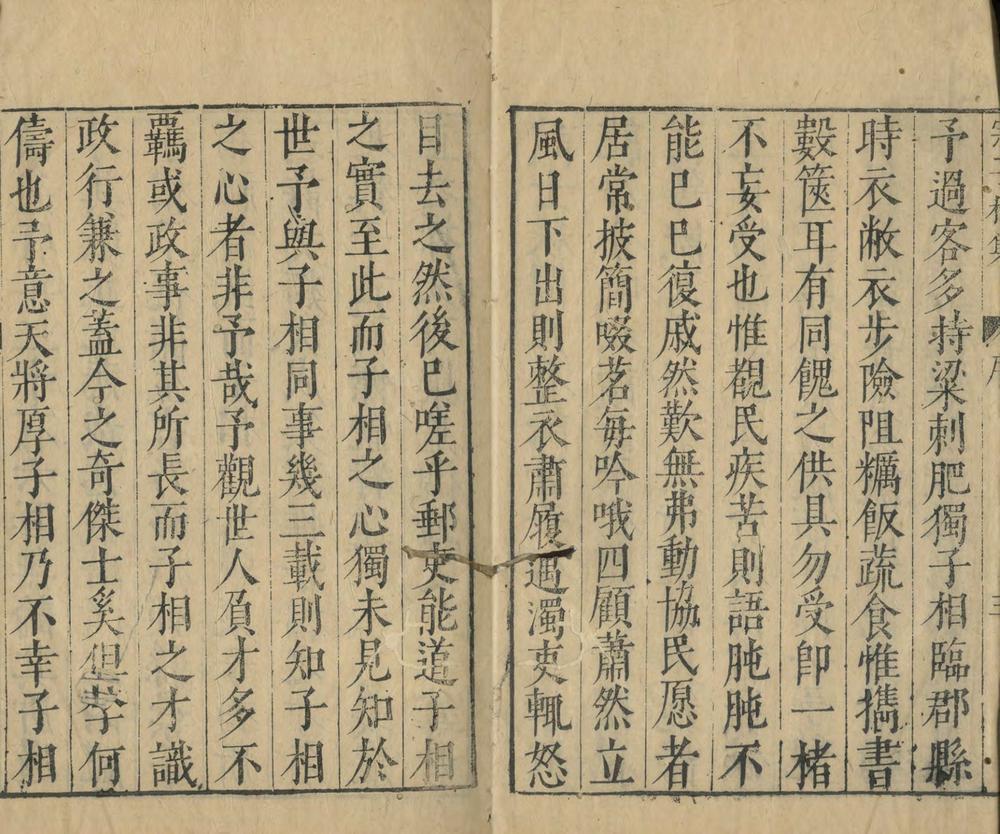 予過客多持粱刺肥獨子相臨郡縣
時衣敝衣步險阻糲飯蔬食惟擕書
數篋耳有同餽之供具勿受卽一楮
不妄受也惟覩民疾苦則語肫肫不
能已已復戚然歎無弗動協民愿者
居常披簡啜茗每吟哦四顧蕭然立
風日下出則整衣肅履遇濁吏輒怒
目去之然後已嗟乎郵吏能道子相
之實至此而子相之心獨未見知於
世予與子相同事幾三載則知子相
之心者非予哉予觀世人負才多不
羈或政事非其所長而子相之才識
政行兼之蓋今之奇傑士奚但孝何
儔也予意天將厚子相乃不幸子相